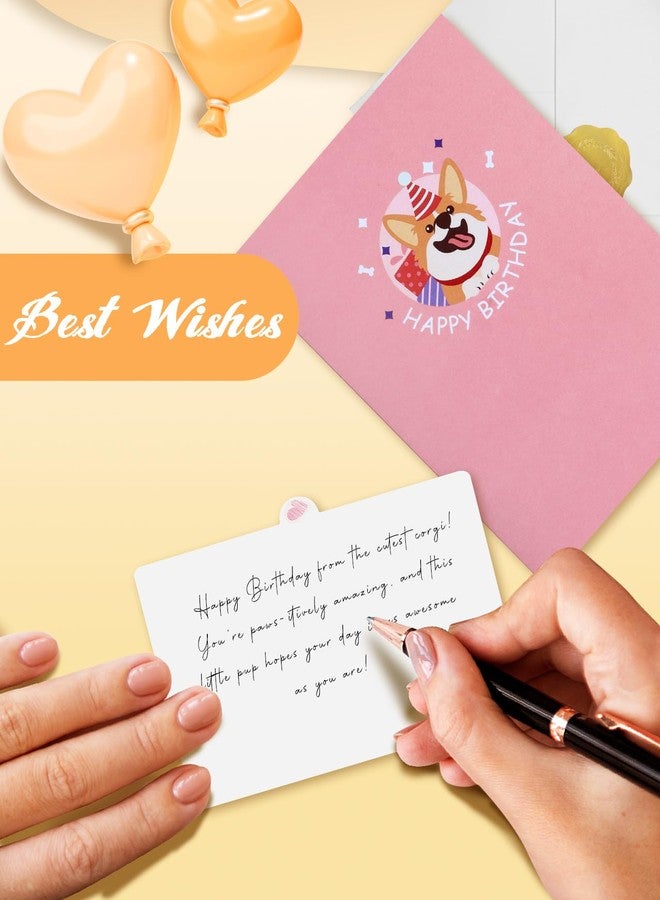 HAPPY BIRTHDAY
Best Wishes
Happy Birthday from the cutest corgi!
You're paws-itively amazing, and this
little pup hopes your day is as awesome
as you are!